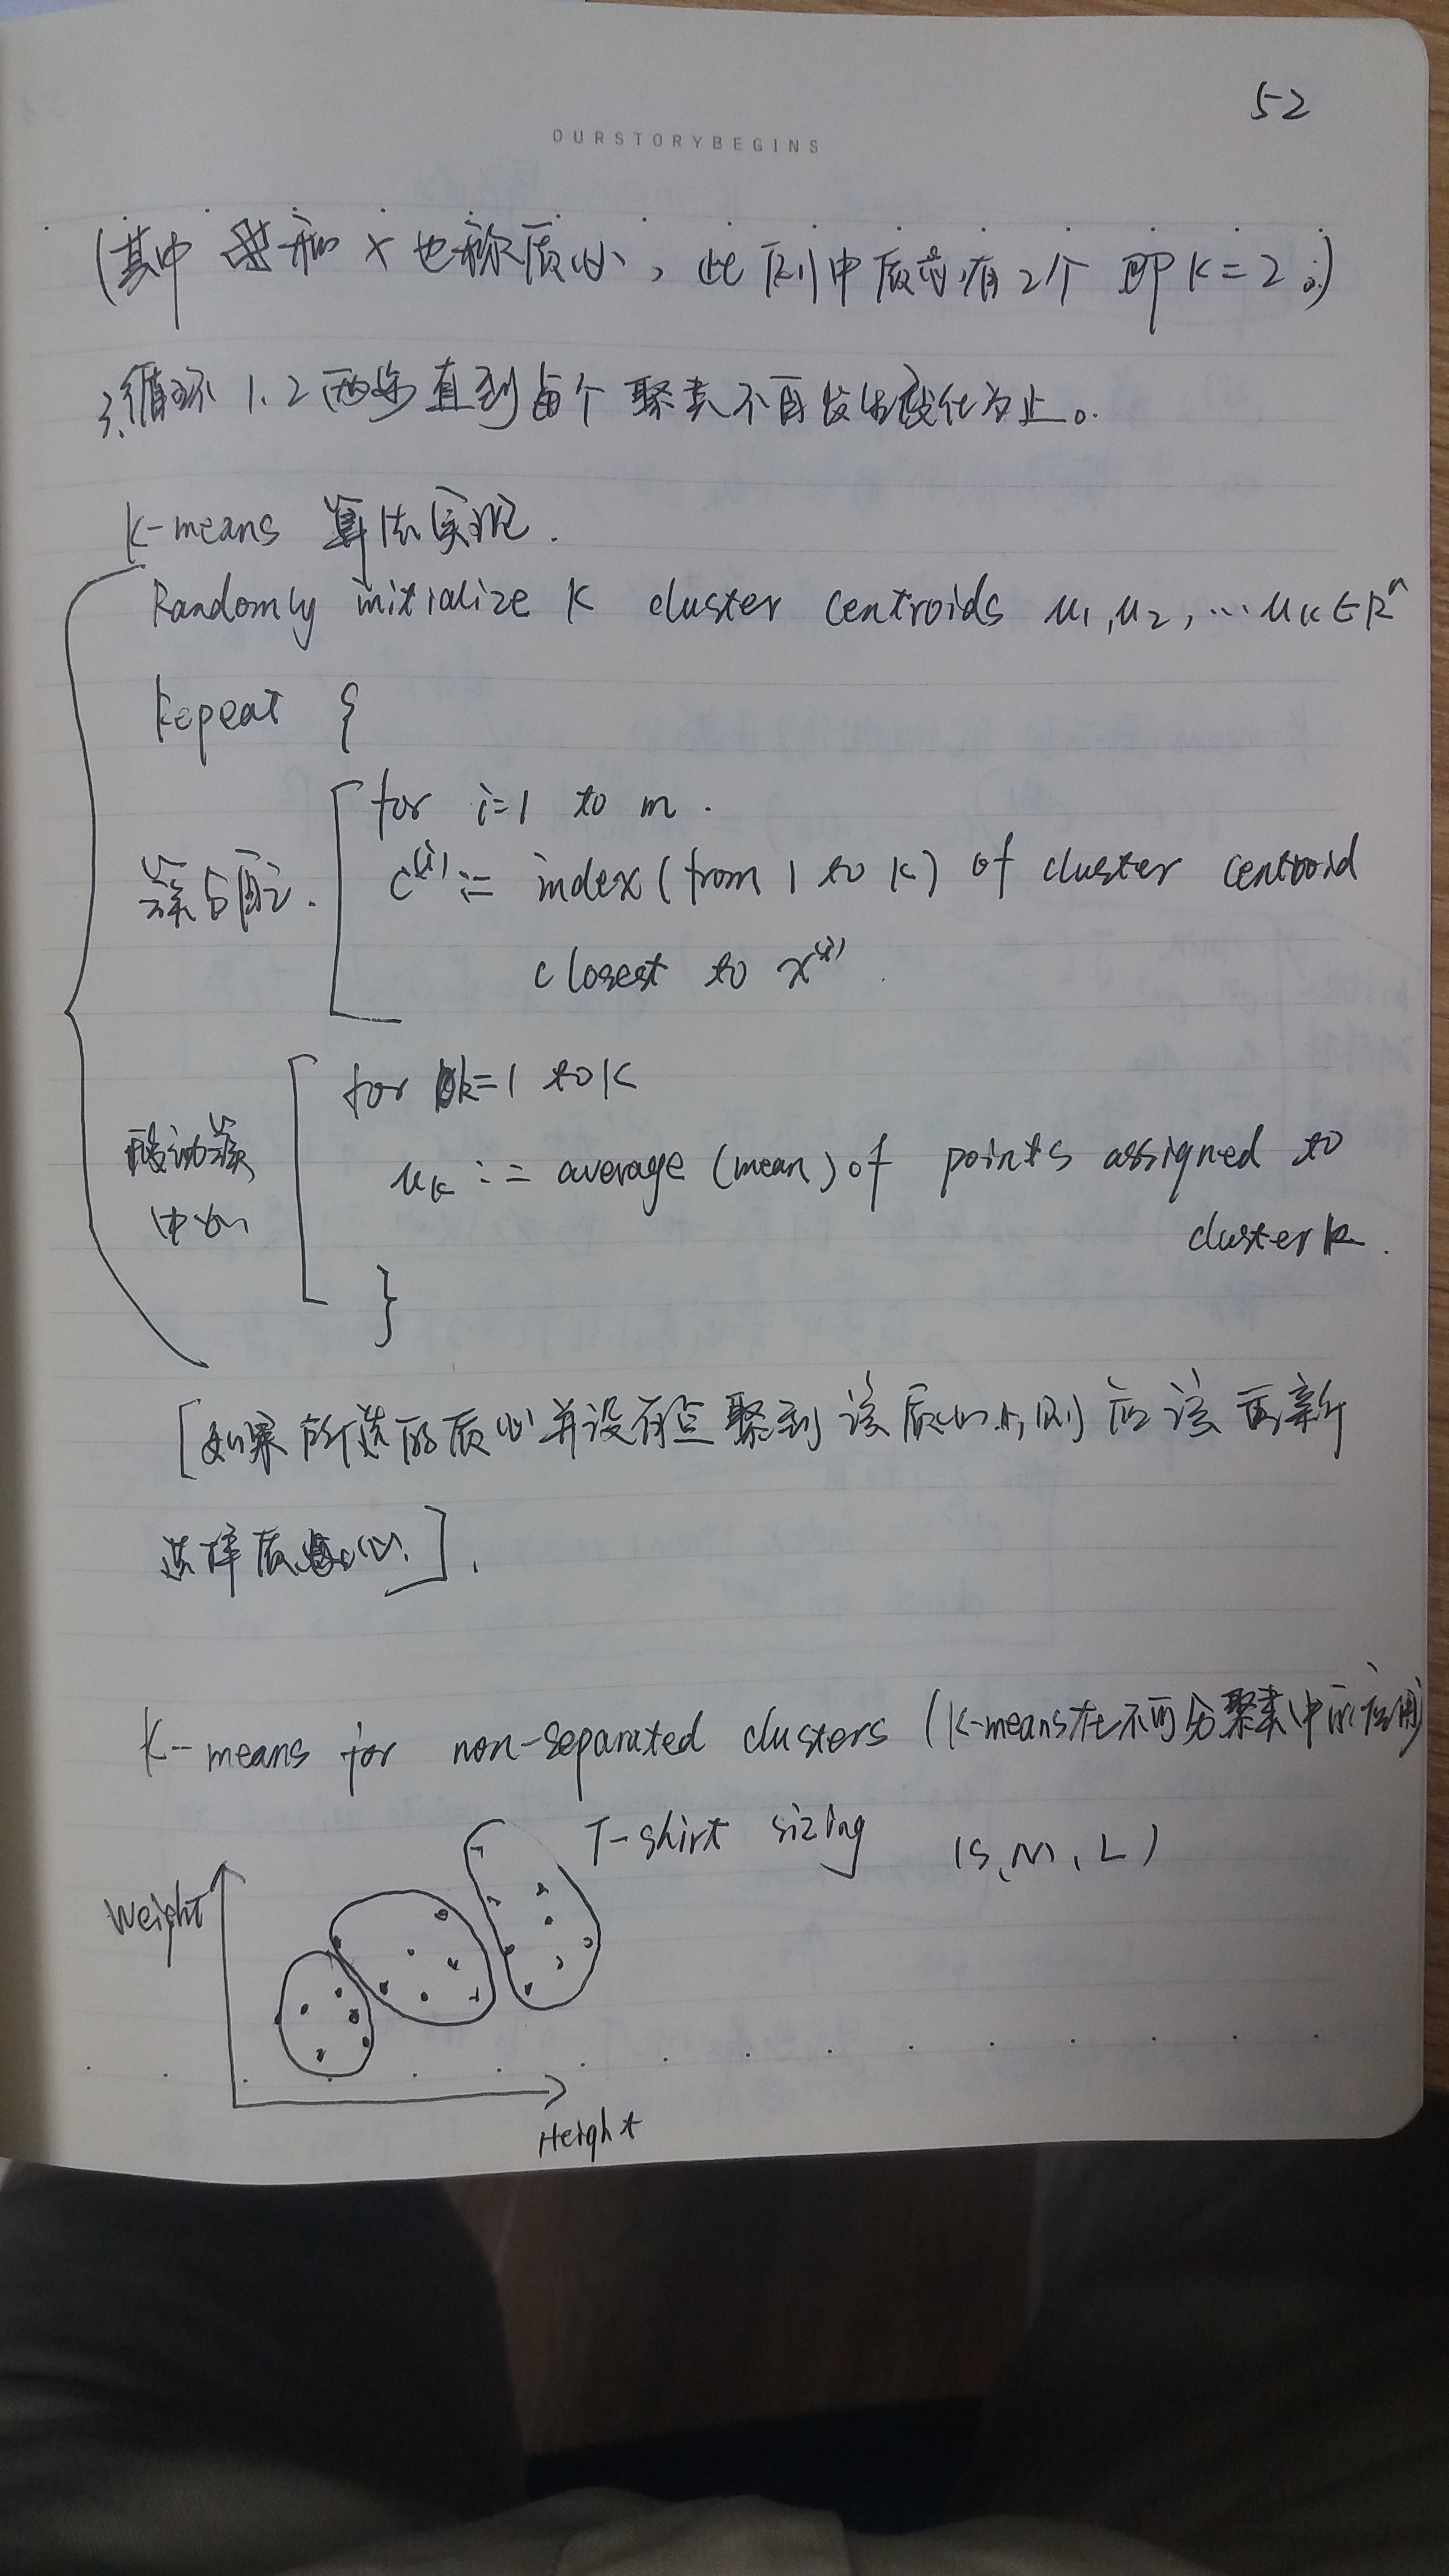 52
OURSTORYBEGINS
(其中 和 × 也称质心，此例中质心有2个 即K=2。)
3.循环 1.2 两步直到每个聚类不再发生变化为止。
K-means 算法实现.
Randomly initialize K cluster centroids μ₁,μ₂,…μₖ∈Rⁿ
Repeat {
for i=1 to m.
簇分配. c⁽ⁱ⁾ := index (from 1 to K) of cluster centroid
closest to x⁽ⁱ⁾.
for k=1 to K
移动簇 μₖ := average (mean) of points assigned to
中心 cluster k.
}
[如果所选的质心并没有点聚到该质心上,则应该重新
选择质心.].
K-means for non-separated clusters (K-means在不可分聚类中的应用)
T-shirt sizing (S, M, L)
Weight
Height